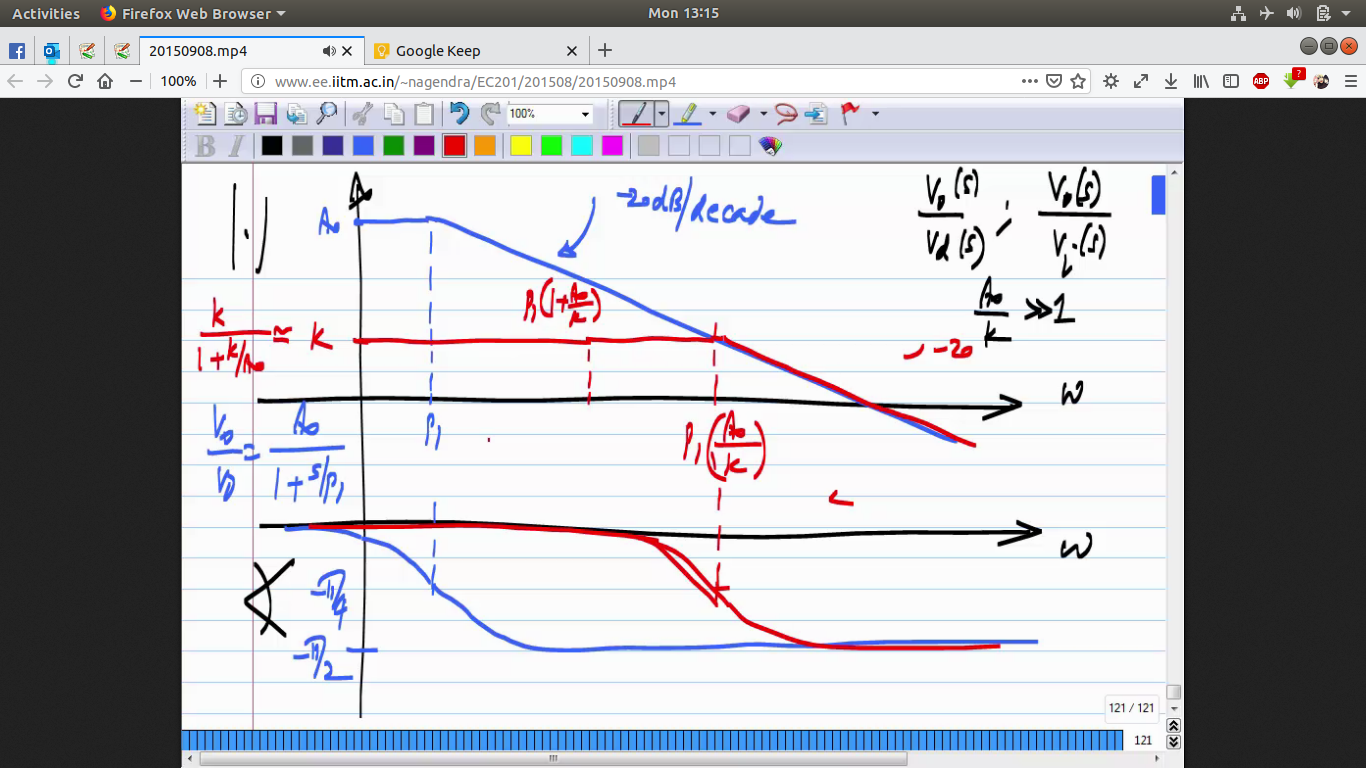 Activities Firefox Web Browser Mon 13:15
20150908.mp4 Google Keep
100% www.ee.iitm.ac.in/~nagendra/EC201/201508/20150908.mp4 ABP ?
100%
B I
|.|
A₀
-20dB/decade
V₀(s)/Vd(s) ; V₀(s)/Vi(s)
A₀/k >> 1
P₁(1+A₀/k)
k/(1+k/A₀) ≈ k
-20
ω
V₀/VD = A₀/(1+s/P₁)
P₁
P₁(A₀/k)
ω
∢
-π/4
-π/2
121 / 121
121